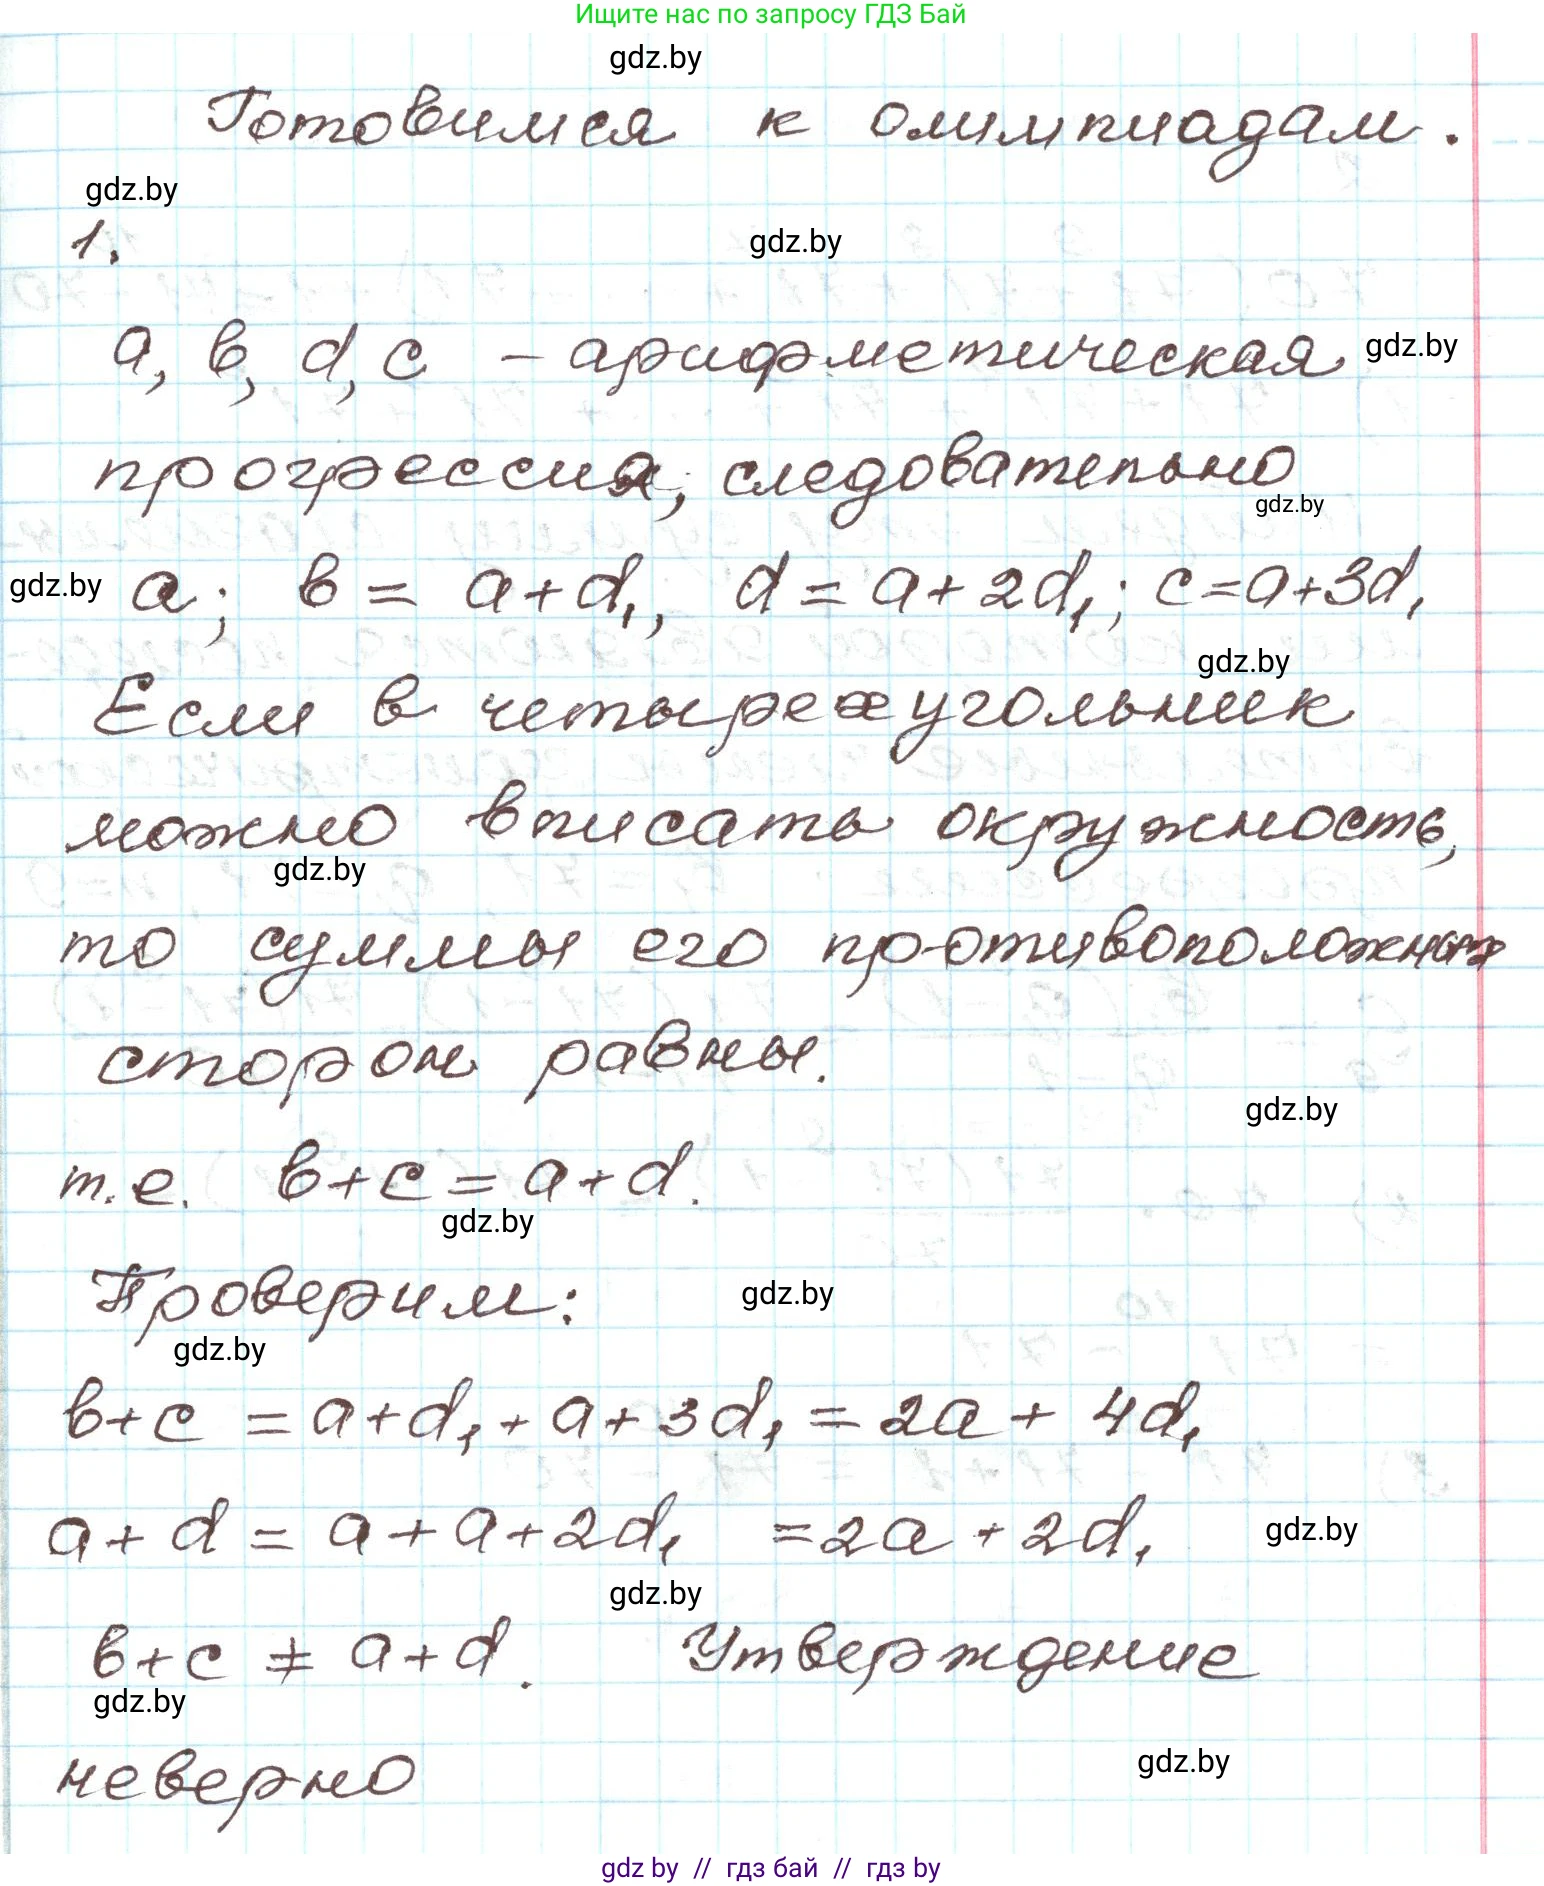 Ищите нас по запросу ГДЗ Бай
gdz.by
Готовимся к олимпиадам.
gdz.by
1.
gdz.by
а, в, d, с – арифметическая
gdz.by
прогрессия, следовательно
gdz.by
gdz.by
а; в = а+d₁, d = а+2d₁; с=а+3d₁
gdz.by
Если в четырехугольник
можно вписать окружность,
gdz.by
то суммы его противоположных
сторон равны.
gdz.by
т.е. в+с = а+d.
gdz.by
Проверим:
gdz.by
gdz.by
в+с = а+d₁+а+3d₁ = 2а + 4d₁
а+d = а+а+2d₁ =2а+2d₁
gdz.by
gdz.by
в+с ≠ а+d. Утверждение
gdz.by
неверно
gdz.by
gdz by // гдз бай // гдз by